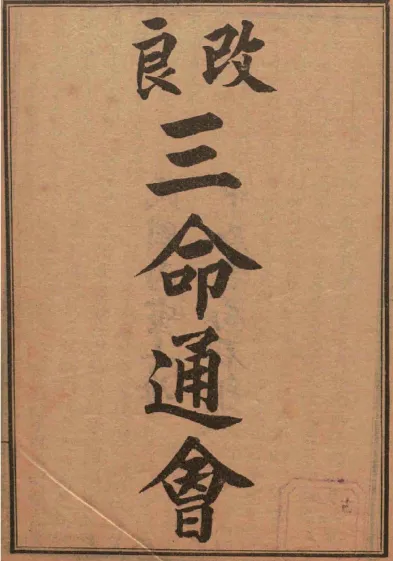 改良
三命通會